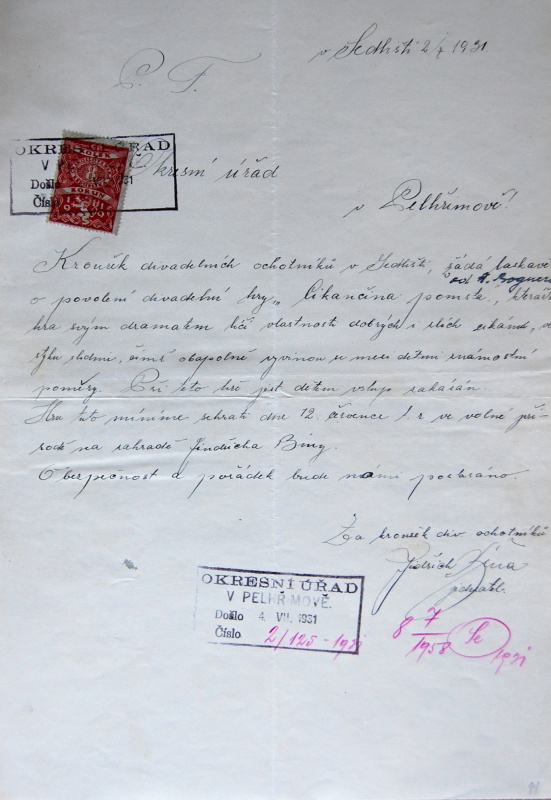 v Sedlišti 2/7 1931.
P. T.
OKRESNÍ ÚŘAD
V
Došlo 1931
Číslo
ČR
KOLEK
8
KORUN
Okresní úřad
v Pelhřimově!
Kroužek divadelních ochotníků v Sedlišti, žádá laskavě
od A. Bognera
o povolení divadelní hry „Cikančina pomsta, kteráž
hra svým dramatem líčí vlastnosti dobrých i zlých cikánů, ve
styku s lidmi, čímž obapolně vyvinou se mezi dětmi známostní
poměry. Při této hře jest dětem vstup zakázán.
Hru tuto míníme sehrati dne 12. července l. r. ve volné pří-
rodě na zahradě Jindřicha Bíny.
O bezpečnost a pořádek bude námi postaráno.
Za kroužek div. ochotníků
Jindřich Bína
OKRESNÍ ÚŘAD
V PELHŘIMOVĚ.
Došlo 4. VII. 1931
Číslo 2/125-1931
8 7
1958 Se 1931